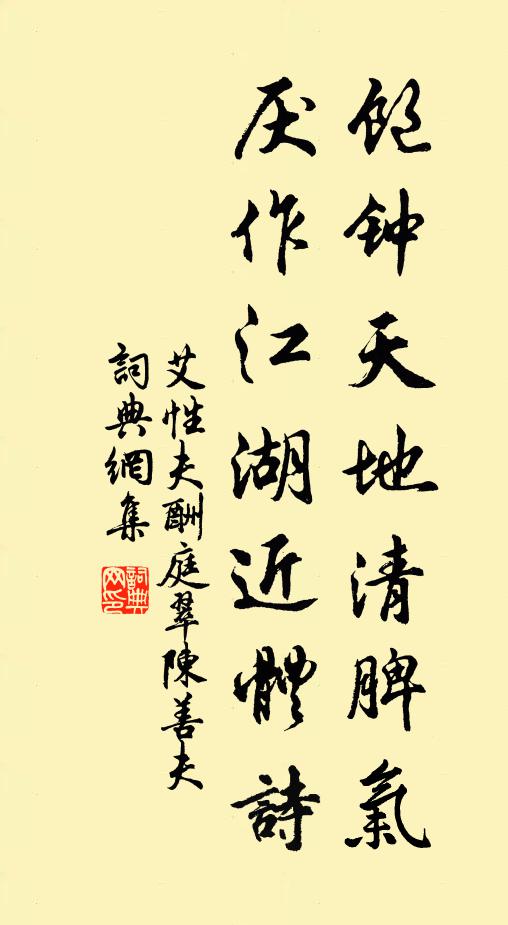 饱钟天地清脾氣
厌作江湖近體詩
艾性夫酬庭翠陳善夫
詞典網集
詞典网印